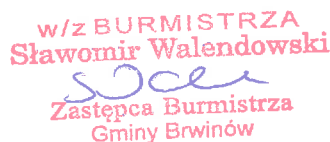 w/z BURMISTRZA
Sławomir Walendowski
Zastępca Burmistrza
Gminy Brwinów